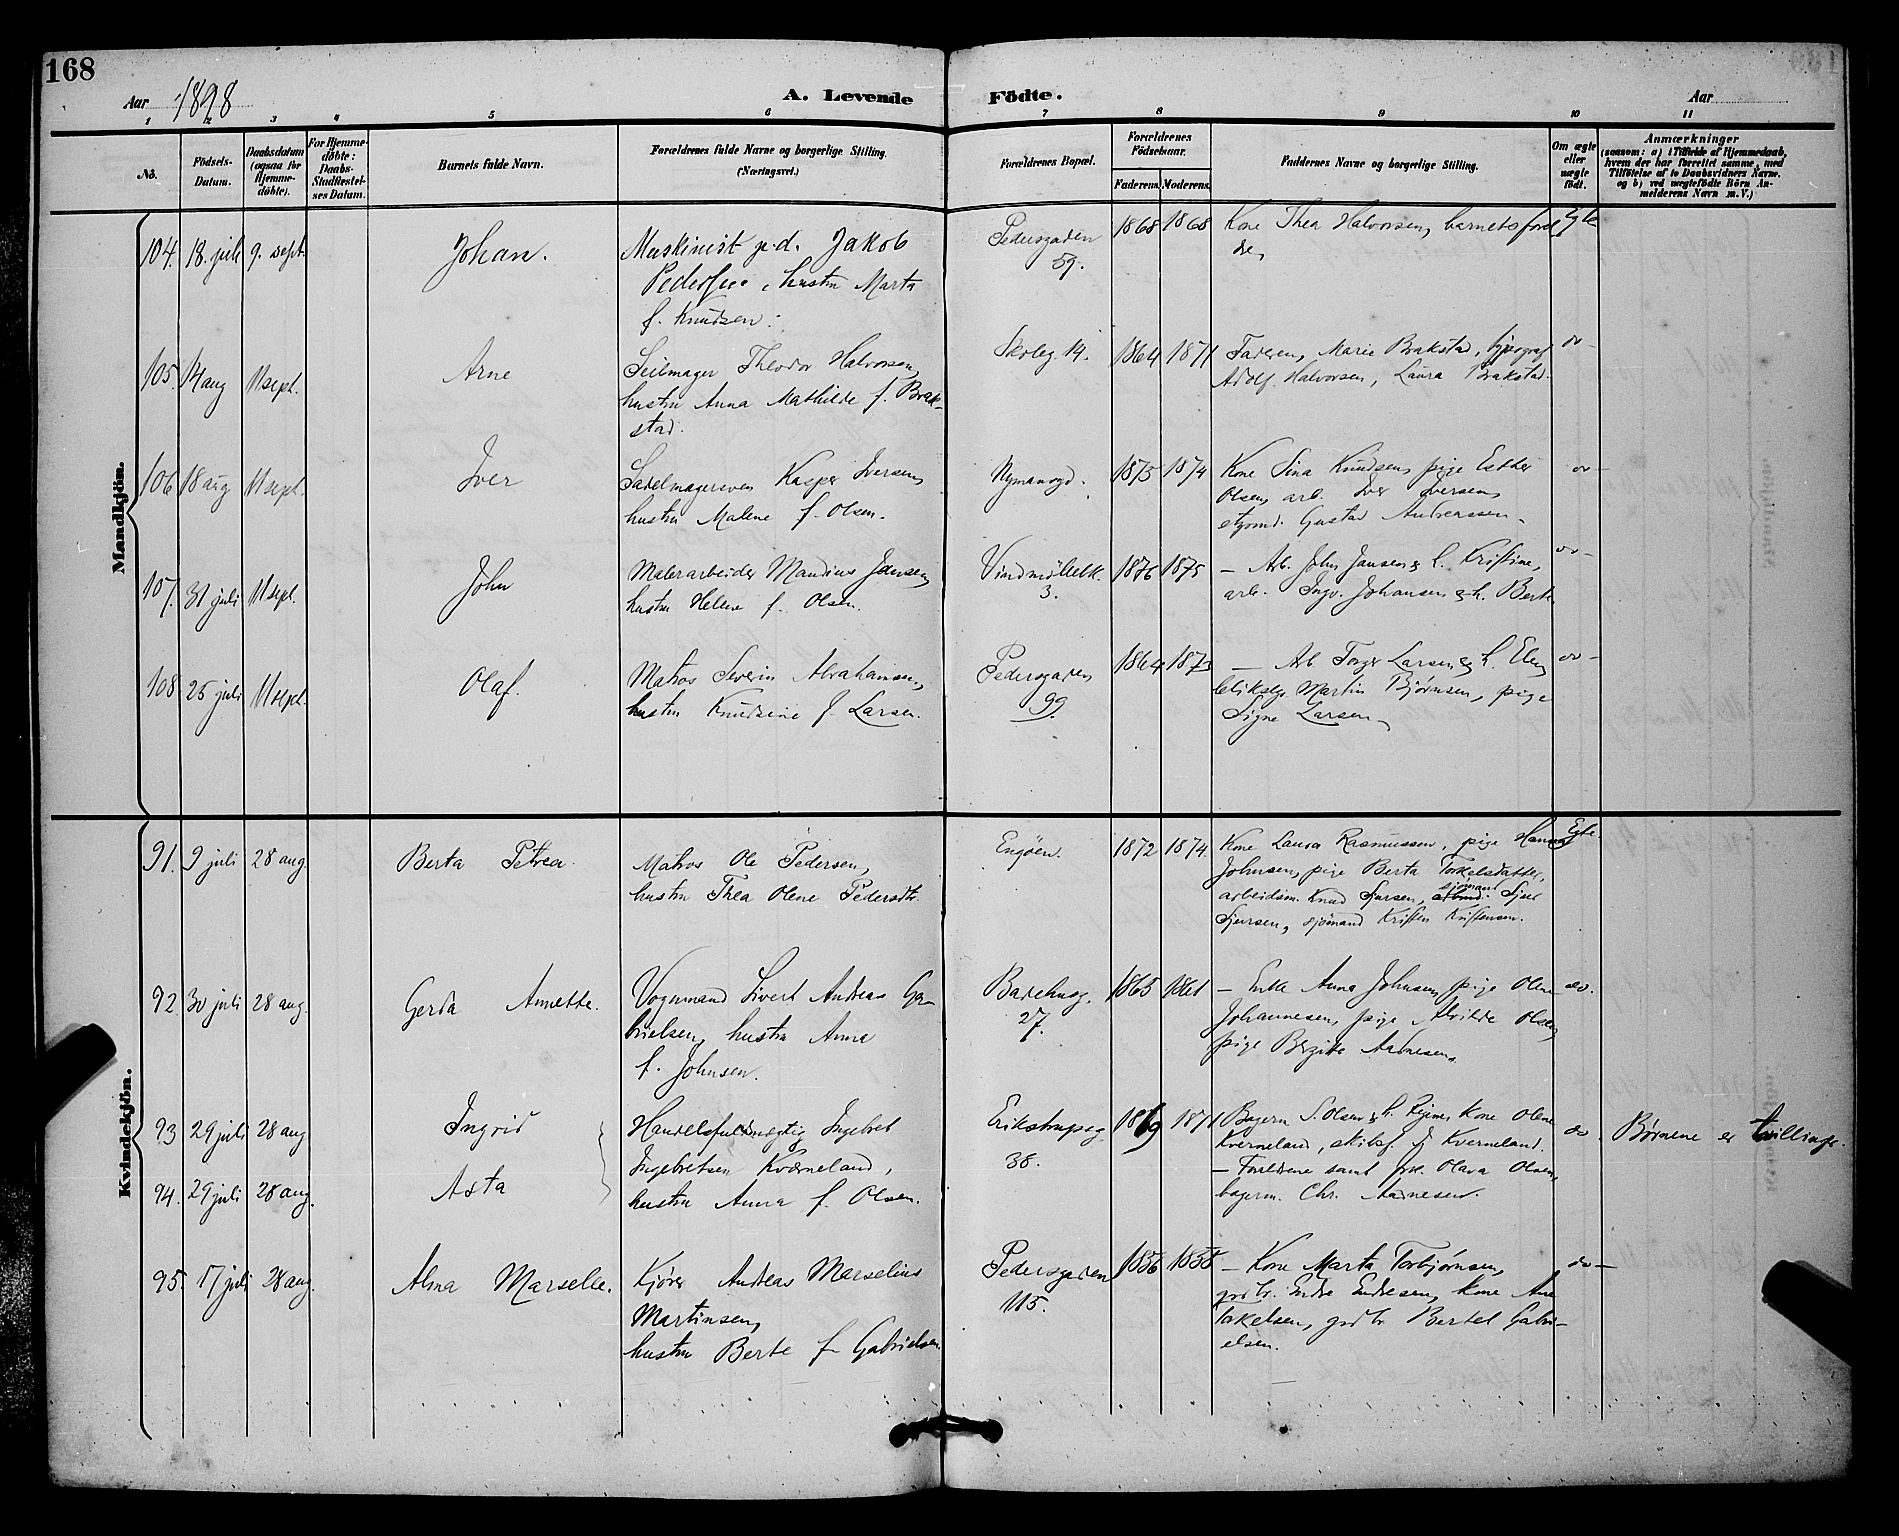 168
Aar 1898
A. Levende Födte.
Aar
1 2 3 4 5 6 7 8 9 10 11
No.
Födsels-Datum.
Daabsdatum (ogsaa for Hjemme-döbte).
For Hjemme-döbte: Daabs-Stadfæstel-ses Datum.
Barnets fulde Navn.
Forældrenes fulde Navne og borgerlige Stilling. (Næringsvei.)
Forældrenes Bopæl.
Forældrenes Födselsaar.
Faderens. Moderens.
Faddernes Navne og borgerlige Stilling.
Om ægte eller uægte födt.
Anmærkninger
(saasom: a) i Tilfælde af Hjemmedaab,
hvem der har forrettet samme, med
Tilföielse af to Daabsvidners Navne.
og b) ved uægtefödte Börn An-
melderens Navn m. V.)
Mandkjön.
104. 18. juli 9. sept. Johan.
Maskinist p.d. Jakob
Pedersen, hustru Marta
f. Knudsen.
Pedersgaden
59.
1868 1868
Kone Thea Halvorsen, barnets foræl
dre,
Egte
105. 14 aug 11 sept. Arne
Seilmager Theodor Halvorsen,
hustru Anna Mathilde f. Brak-
stad.
Skoleg. 14.
1864 1871
Faderen, Marie Brakstad, typograf
Adolf Halvorsen, Laura Brakstad.
do-
106 18 aug 11 sept. Iver
Sadelmagersven Kasper Iversen,
hustru Malene f. Olsen.
Nymansgd.
1875 1874
Kone Sina Knudsen, pige Esther
Olsen, arb. Iver Iversen,
styrmd. Gustav Andreassen.
do-
107. 31 juli 11 sept. John
Malerarbeider Mandius Jansen,
hustru Helene f. Olsen.
Vindmöllebk.
3.
1876 1875
- Arb. John Jansen & h. Kristine,
arb. Ingv. Johansen & h. Berte.
do-
108 25 juli 11 sept. Olaf.
Matros Severin Abrahamsen,
hustru Knudsine f. Larsen.
Pedersgaden
99.
1864 1873
- Arb Torger Larsen & h. Elen,
bliksl. Martin Bjørnsen, pige
Signe Larsen
do-
Kvindekjön.
91. 9 juli 28 aug. Berta Petrea.
Matros Ole Pedersen,
hustru Thea Olene Pedersdtr.
Engöen.
1872 1874.
Kone Laura Rasmussen, pige Hanna
Johnsen, pige Berta Torkelsdatter,
arbeidsm. Knud Sjursen, sjömand Sjur
Sjursen, sjömand Kristen Kristensen.
Egte.
92. 30 juli 28 aug. Gerda Annette.
Vognmand Sivert Andreas Ga-
brielsen, hustru Anna
f. Johnsen.
Badehusg.
27.
1865 1861
- Enke Anna Johnsen, pige Olene
Johannesen, pige Alvilde Olsen,
pige Bergitte Aadnesen.
do.
93 29 juli 28 aug Ingrid
94. 29 juli 28 aug. Asta
Handelsfuldmægtig Ingebret
Ingebretsen Kverneland,
hustru Anna f. Olsen.
Erikstrupsg.
38.
1869 1871
Bagerm. S. Olsen & h. Regine, Kone Olene
Kverneland, skibsf. J. Kverneland.
- Forældrene samt frk. Olava Olsen,
bagerm. Chr. Aadnesen.
do. Børnene er tvillinger.
95. 17 juli 28 aug. Alma Marselie.
Kjører Andreas Marselius
Martinsen,
hustru Berte f. Gabrielsen.
Pedersgaden
115.
1856 1858
- Kone Marta Torbjørnsen,
gdbr. Endre Endresen, Kone Ane
Torkelsen, gdbr Bertel Gabri-
elsen.
do-